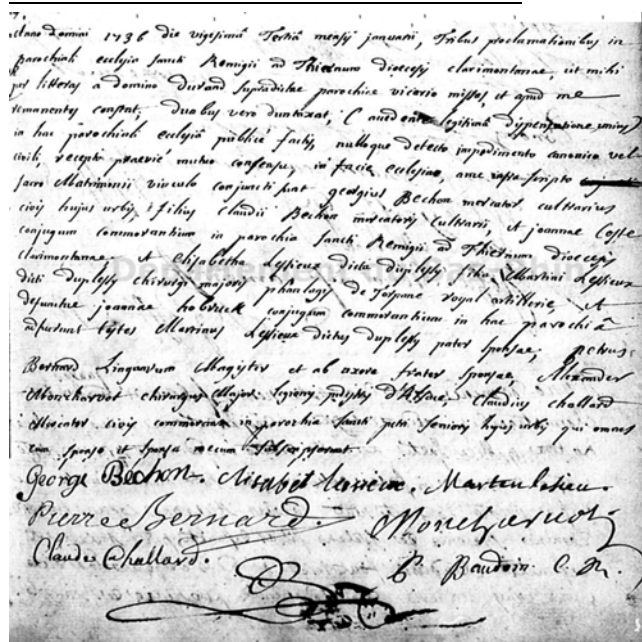 Anno Domini 1736 die vigesimâ Tertiâ mensis januarii, Tribus proclamationibus in
parochiali ecclesia sancti Remigii ad Thiernum diocesis claromontanae, uti mihi
per litteras a domino durand supradictae parochiae vicario missas, et apud me
remanentes constat, duabus vero duntaxat, accedente legitimâ dispensatione unius
in hac parochiali ecclesiâ publicè factis, nulloque detecto impedimento canonico vel
civili, recepto praeviè mutuo consensu, in facie ecclesiae, ame infra scripto
sacro Matrimonii vinculo conjuncti sunt georgius Bechon mercator cultrarius
civis hujus urbis, filius Claudii Bechon mercatoris Cultrarii, et joannae Coste
conjugum commorantium in parochia sancti Remigii ad Thiernum diocesis
clarimontanae, et Elisabetha Lesieux dicta duplessy filia Martini Lesieux
dicti duplessy chirurgi majoris phalangis de Torpane royal artillerie, et
defunctae joannae hobruck conjugum commorantium in hac parochiâ
adfuerunt testes Martinus Lesieux dictus duplessy pater sponsae, petrus
Bernard Linguarum Magister et ab uxore frater sponsae, Alexander
Moncharvot chirurgus Major legionis d'Alsace, Claudius challard
Mercator civis commorans in parochia sancti petri senioris hujus urbis qui omnes
cum sponso et sponsa mecum subscripserunt
George Bechon. Elisabet lesieux. Marten lesieu.
Pierre Bernard. Moncharvot
Claude Challard. Baudoin C. R.